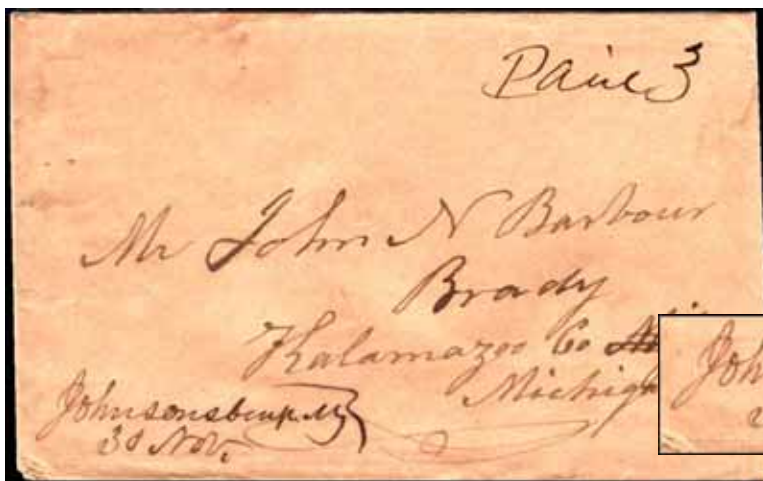 Paid 3
Mr John N Barbour
Brady
Kalamazoo Co
Michiga
Johnsonsburg NY
30 Nov.
Joh